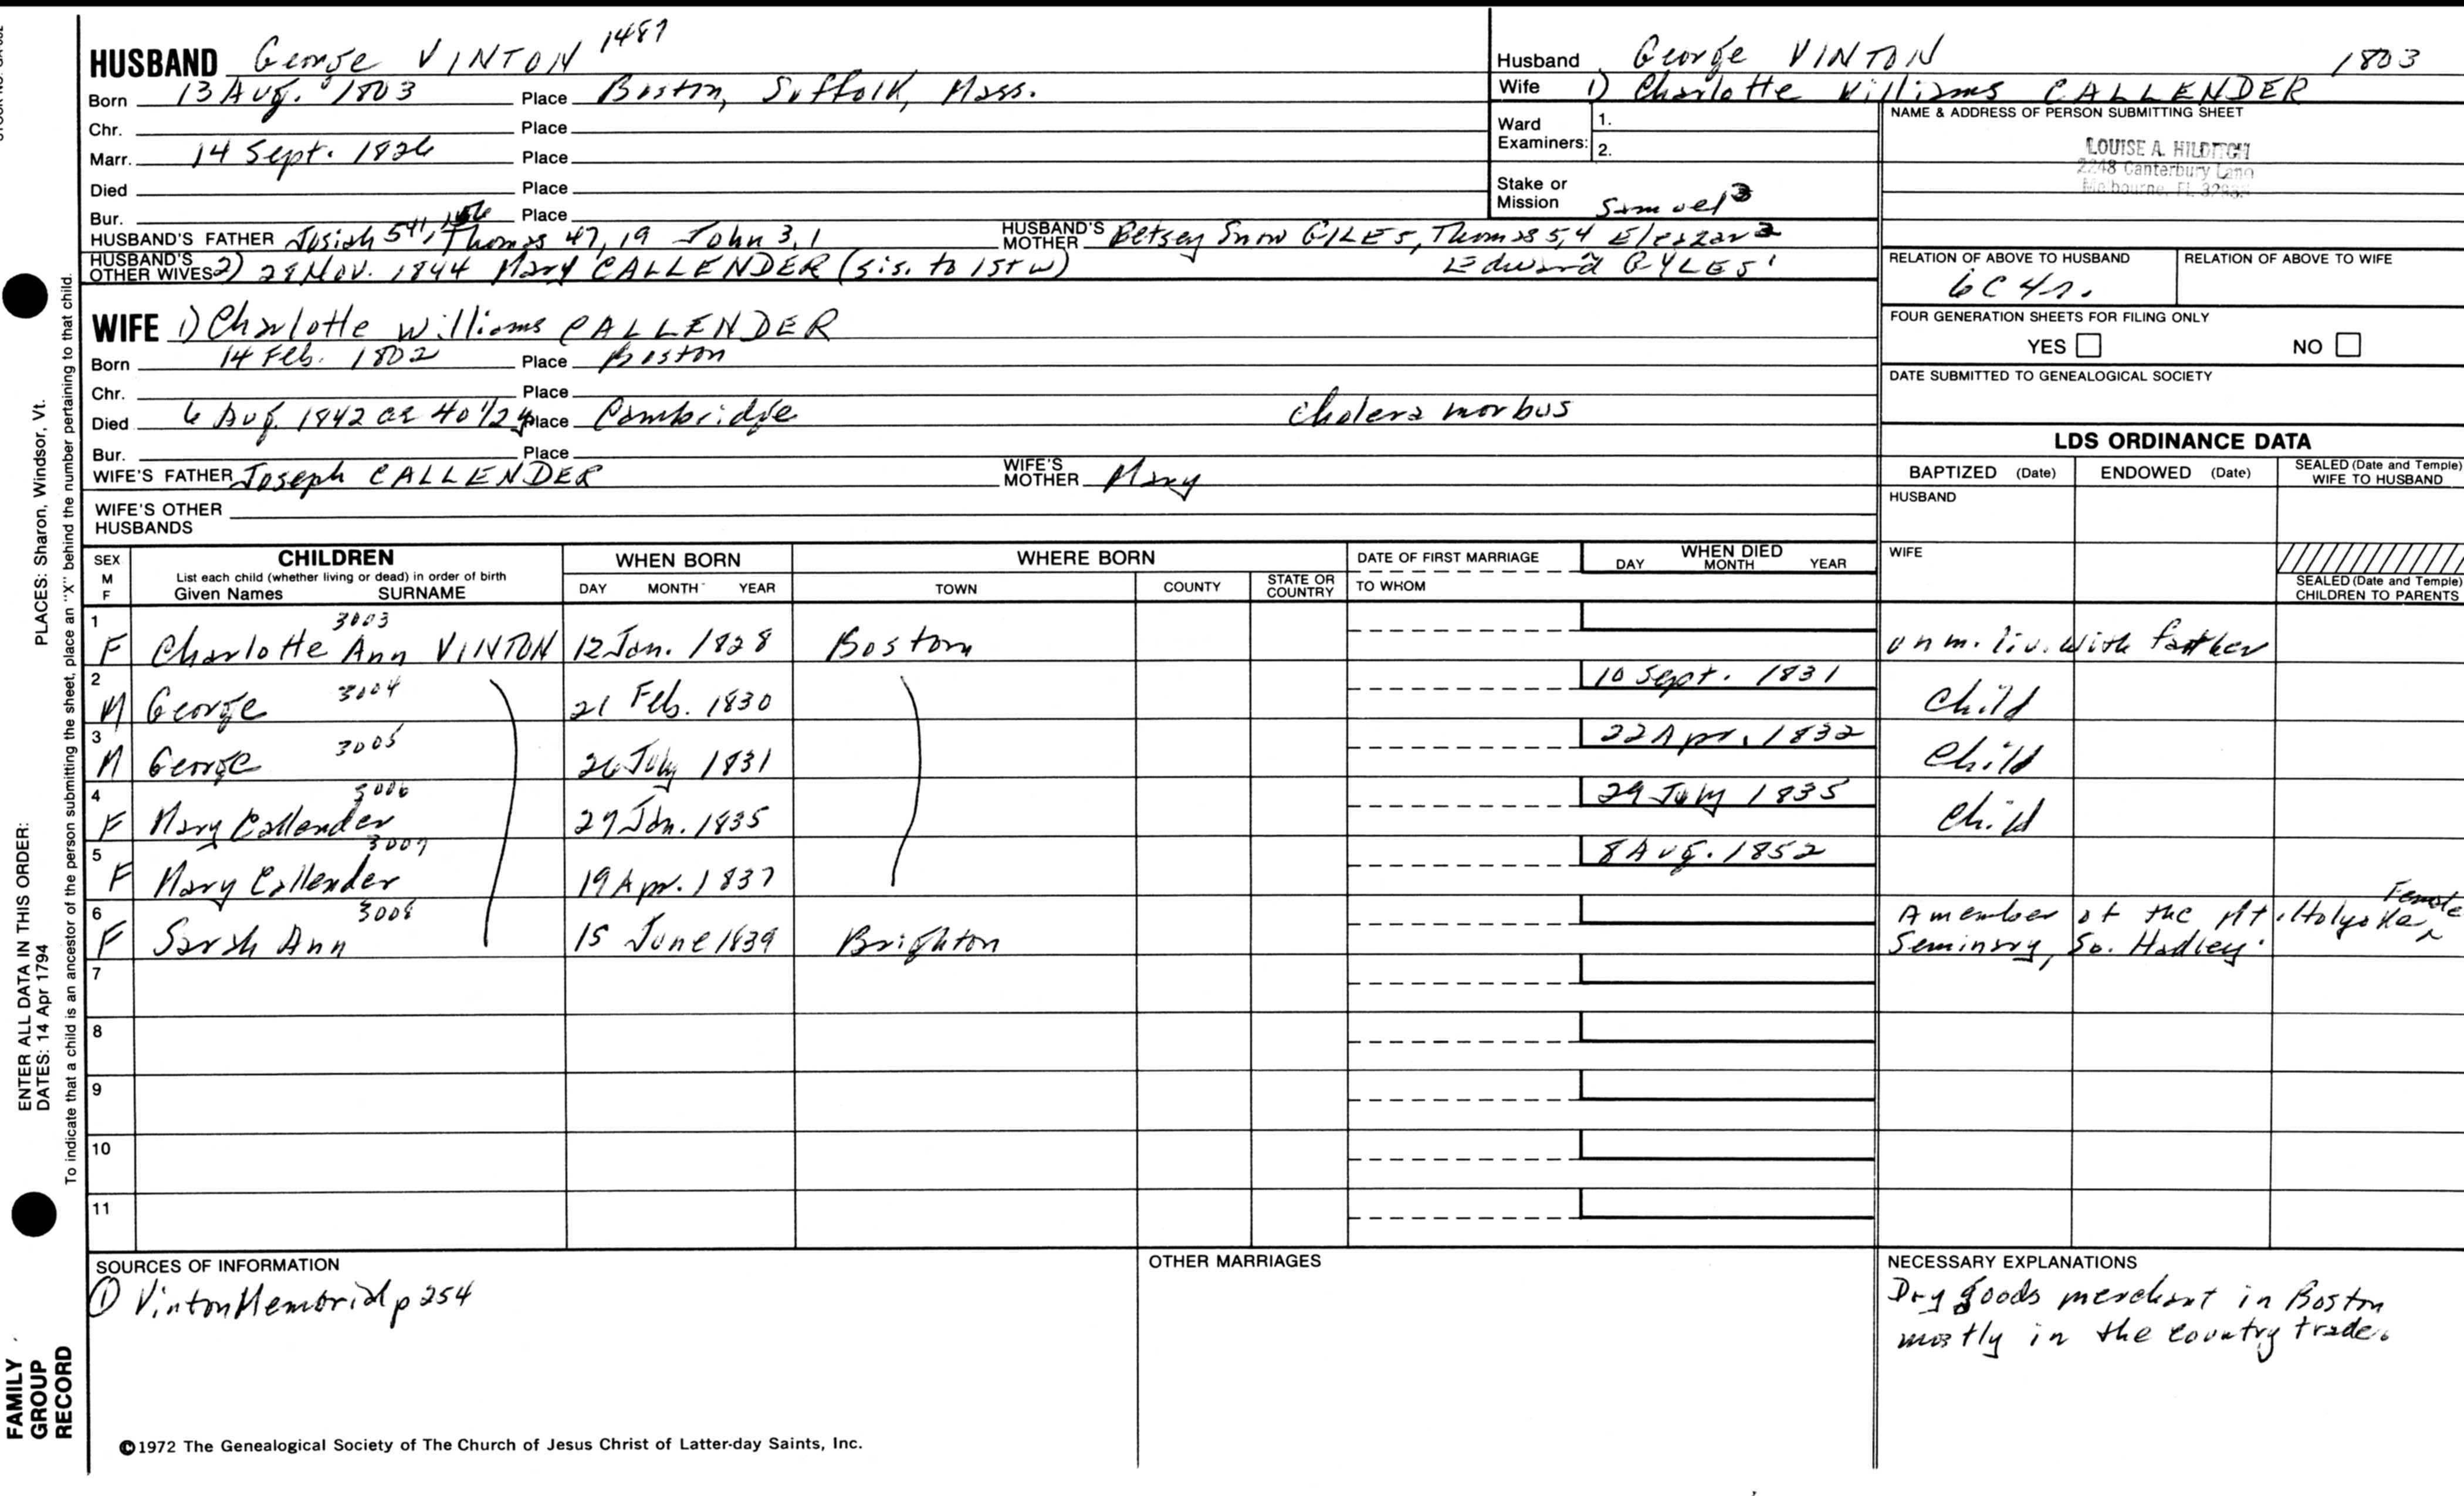 HUSBAND George VINTON 1487
Born 13 Aug. 1803 Place Boston, Suffolk, Mass.
Chr. Place
Marr. 14 Sept. 1826 Place
Died Place
Bur. Place
HUSBAND'S FATHER Josiah 541, Thomas 47, 19 John 3, 1 HUSBAND'S MOTHER Betsey Snow GILES, Thomas 5, 4 Eleazar 2
Samuel 3
Edward GYLES 1
HUSBAND'S OTHER WIVES 2) 28 Nov. 1844 Mary CALLENDER (sis. to 1st w)
WIFE 1) Charlotte Williams CALLENDER
Born 14 Feb. 1802 Place Boston
Chr. Place
Died 6 Aug. 1842 ae 40 1/2 y Place Cambridge cholera morbus
Bur. Place
WIFE'S FATHER Joseph CALLENDER WIFE'S MOTHER Mary
WIFE'S OTHER HUSBANDS
Husband George VINTON 1803
Wife 1) Charlotte Williams CALLENDER
Ward Examiners: 1.
2.
Stake or Mission
NAME & ADDRESS OF PERSON SUBMITTING SHEET
LOUISE A. HILDITCH
2248 Canterbury Lane
Melbourne, Fl.
RELATION OF ABOVE TO HUSBAND RELATION OF ABOVE TO WIFE
6C4r.
FOUR GENERATION SHEETS FOR FILING ONLY
YES NO
DATE SUBMITTED TO GENEALOGICAL SOCIETY
LDS ORDINANCE DATA
BAPTIZED (Date) ENDOWED (Date) SEALED (Date and Temple) WIFE TO HUSBAND
HUSBAND
WIFE
SEALED (Date and Temple) CHILDREN TO PARENTS
SEX M F
CHILDREN
List each child (whether living or dead) in order of birth
Given Names SURNAME
WHEN BORN
DAY MONTH YEAR
WHERE BORN
TOWN COUNTY STATE OR COUNTRY
DATE OF FIRST MARRIAGE
TO WHOM
WHEN DIED
DAY MONTH YEAR
1 F Charlotte Ann VINTON 3003 12 Jan. 1828 Boston unm. liv. with father
2 M George 3004 21 Feb. 1830 10 Sept. 1831 child
3 M George 3005 26 July 1831 22 Apr. 1832 child
4 F Mary Callender 3006 27 Jan. 1835 29 July 1835 child
5 F Mary Callender 3007 19 Apr. 1837 8 Aug. 1852
6 F Sarah Ann 3008 15 June 1839 Brighton A member of the Mt. Holyoke Female
Seminary, So. Hadley.
7
8
9
10
11
SOURCES OF INFORMATION
① Vinton Memorial p 254
OTHER MARRIAGES
NECESSARY EXPLANATIONS
Dry goods merchant in Boston
mostly in the country trade.
©1972 The Genealogical Society of The Church of Jesus Christ of Latter-day Saints, Inc.
FAMILY GROUP RECORD
ENTER ALL DATA IN THIS ORDER:
DATES: 14 Apr 1794
PLACES: Sharon, Windsor, Vt.
To indicate that a child is an ancestor of the person submitting the sheet, place an "X" behind the number pertaining to that child.